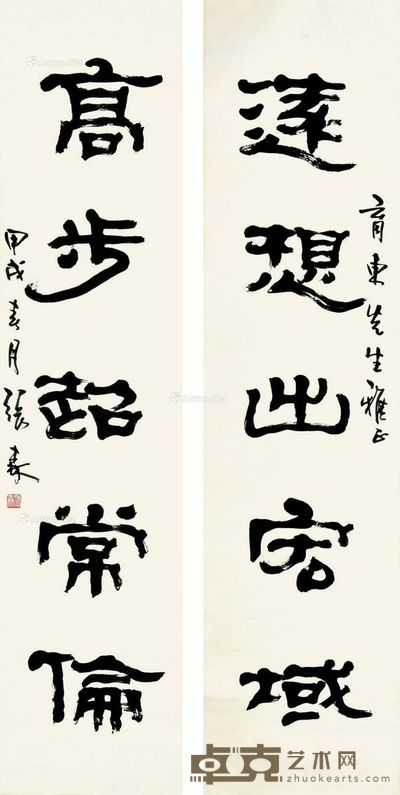 遠想出宏域
育東先生雅正
高步超常倫
甲戌春月張森
卓克艺术网
www.zhuokearts.com